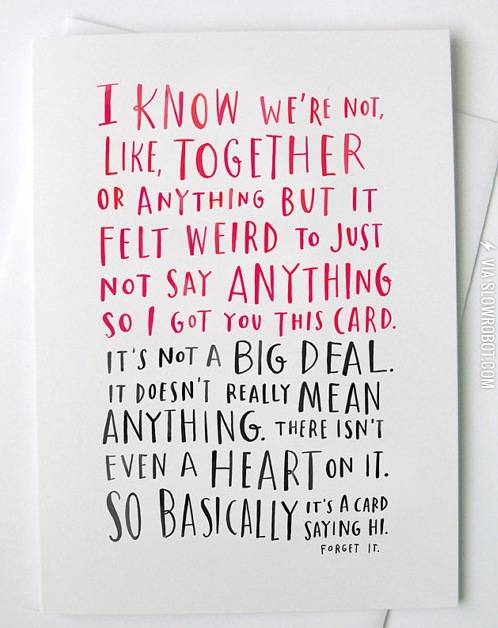 I KNOW WE'RE NOT,
LIKE, TOGETHER
OR ANYTHING BUT IT
FELT WEIRD TO JUST
NOT SAY ANYTHING
SO I GOT YOU THIS CARD.
IT'S NOT A BIG DEAL.
IT DOESN'T REALLY MEAN
ANYTHING. THERE ISN'T
EVEN A HEART ON IT.
SO BASICALLY IT'S A CARD
SAYING HI.
FORGET IT.
VIA SLOWROBOT.COM